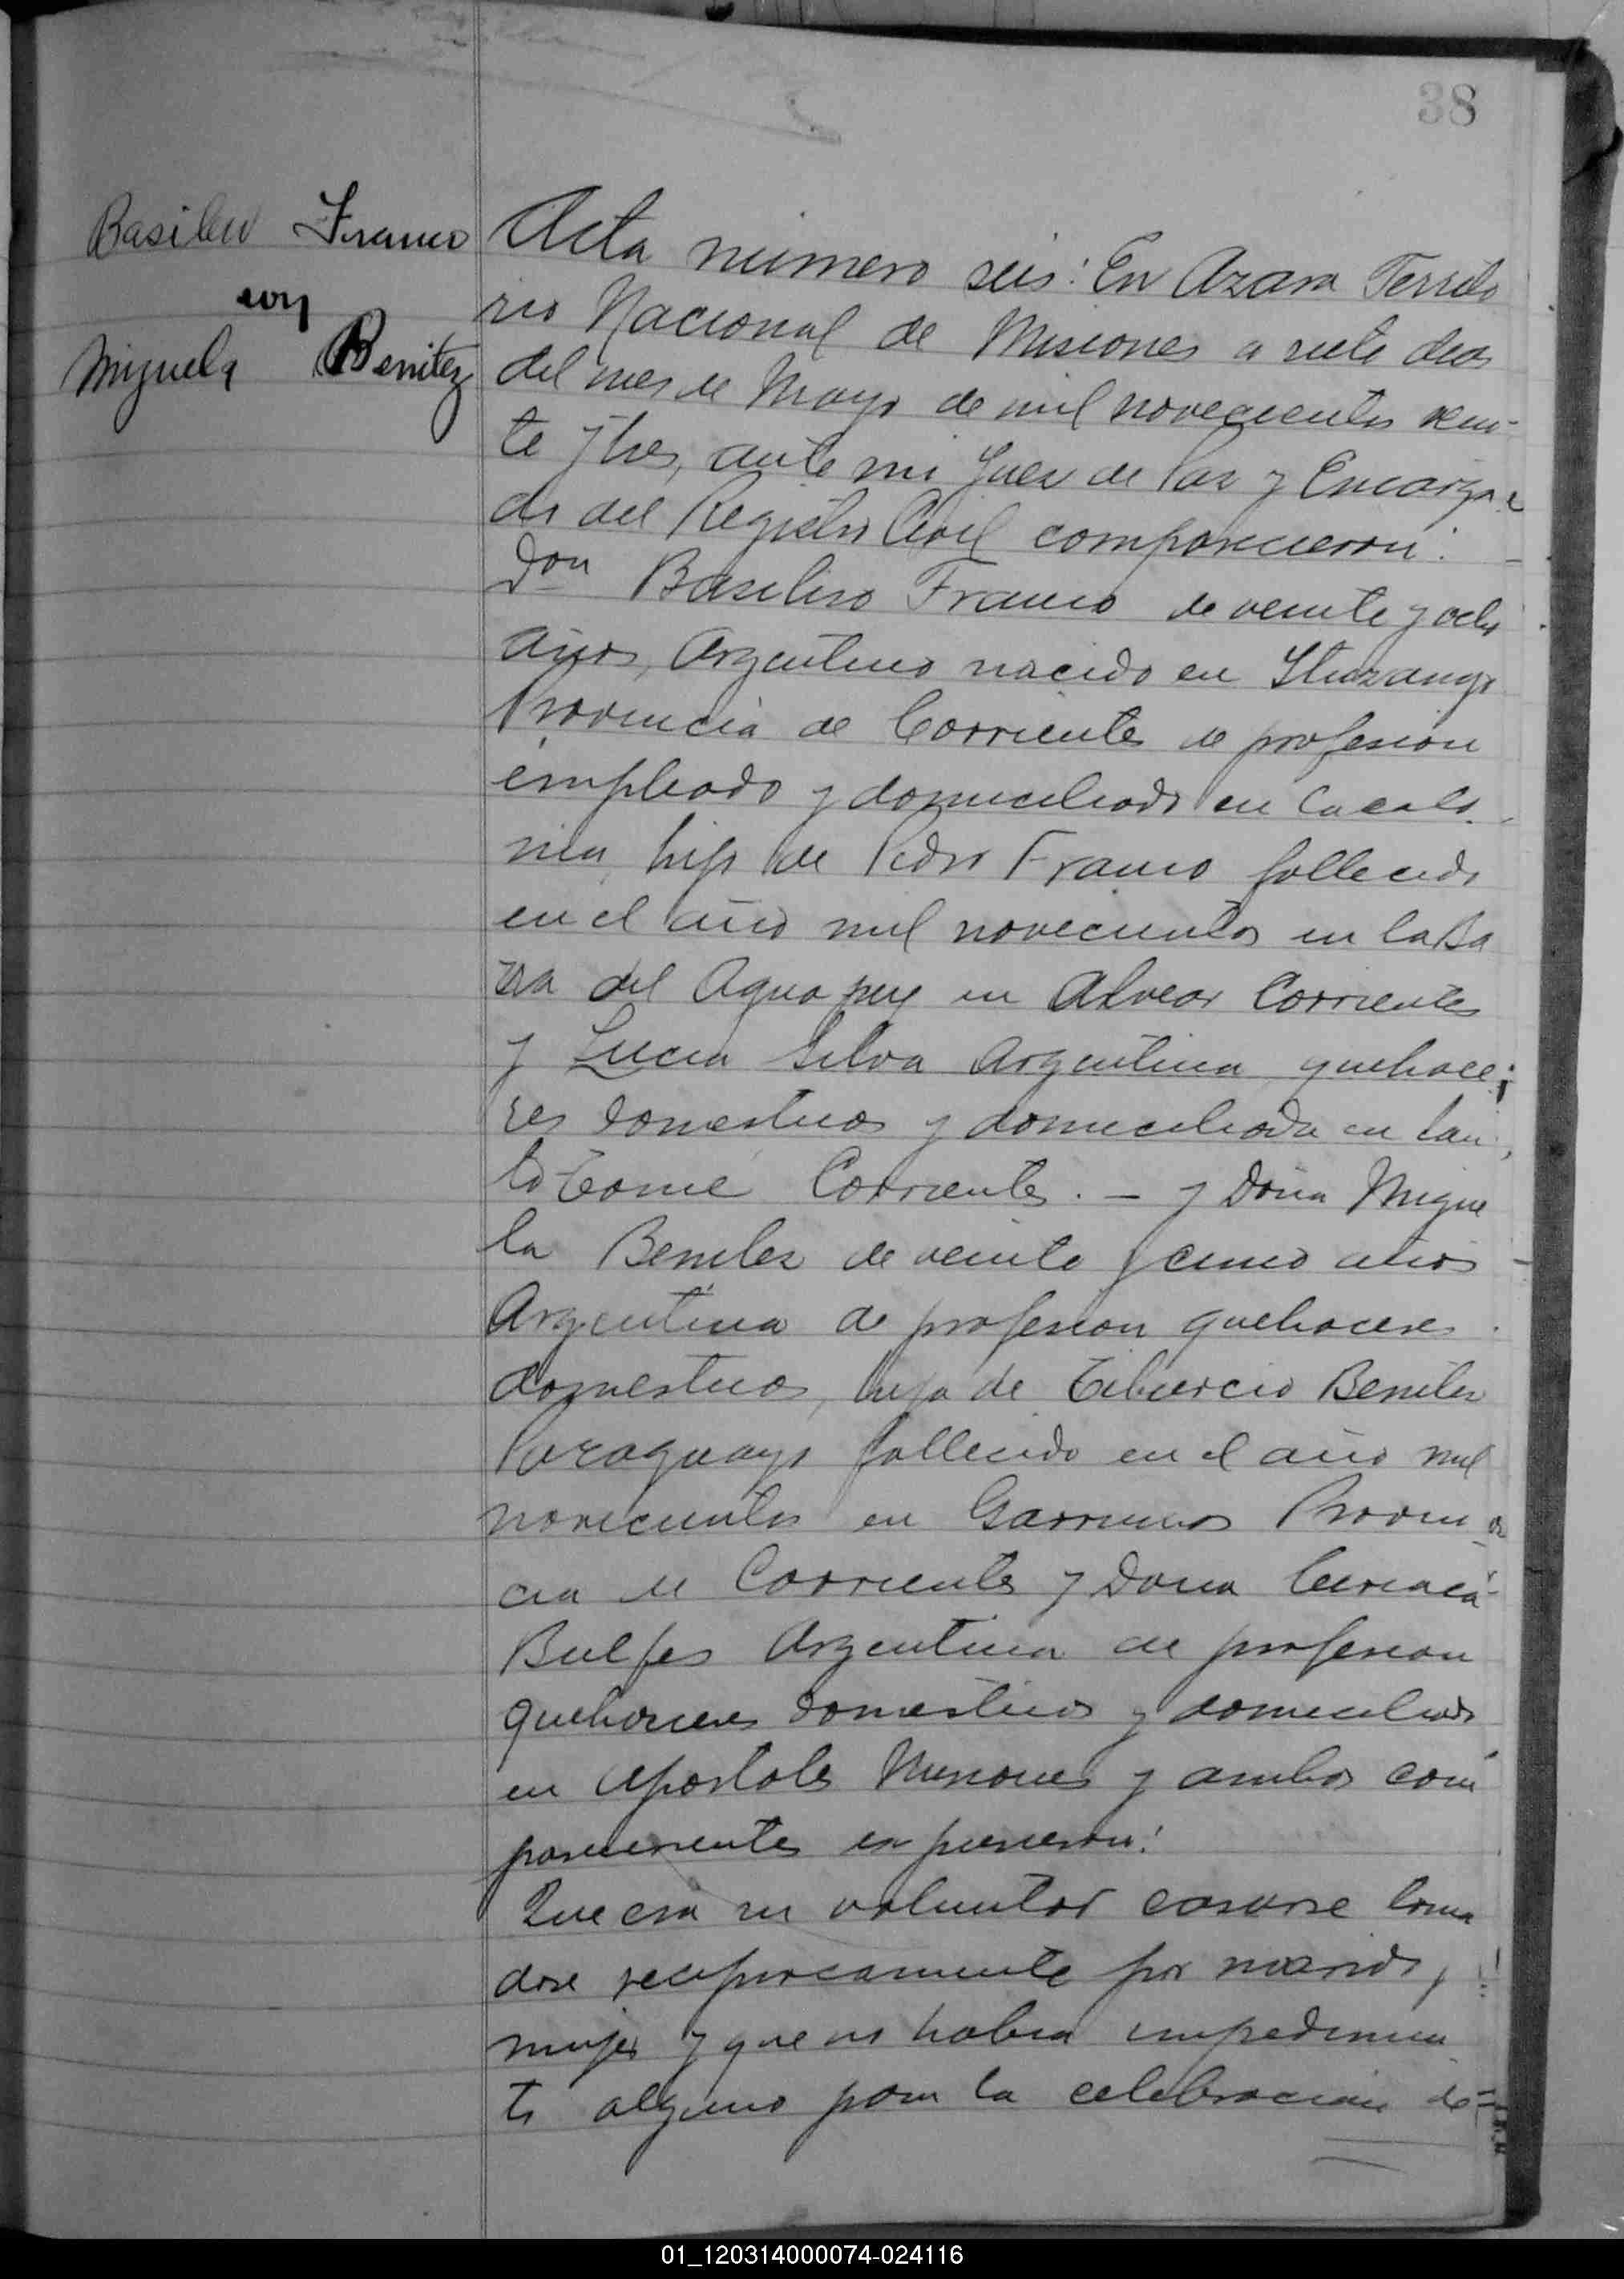 38
Basilio Franco
con
Miguela Benitez
Acta número seis: En Azara Territo
rio Nacional de Misiones a siete dias
del mes de Mayo de mil novecientos vein-
te y tres, ante mi Juez de Paz y Encarga
do del Registro Civil comparecieron:
Don Basiliso Franco de veinte y ocho
años, Argentino nacido en Ituzaingo
Provincia de Corrientes de profesion
empleado y domiciliado en la colo
nia, hijo de Pedro Franco fallecido
en el año mil novecientos en la Ba
rra del Aguapey en Alvear Corrientes
y Lucia Silva Argentina quehace
res domesticos y domiciliada en San
to Tomé Corrientes. - y Doña Migue
la Benitez de veinte y cinco años
Argentina de profesion quehaceres
domesticos, hija de Tiburcio Benitez
Paraguayo fallecido en el año mil
novecientos en Garruchos Provin
cia de Corrientes y Doña Ciriaca
Bulfes Argentina de profesion
quehaceres domesticos y domiciliada
en Apostoles Misiones y ambos com
parecientes expusieron:
Que era su voluntad casarse toma
dose reciprocamente por marido y
mujer y que no habia impedimen
to alguno para la celebracion de
01_120314000074-024116